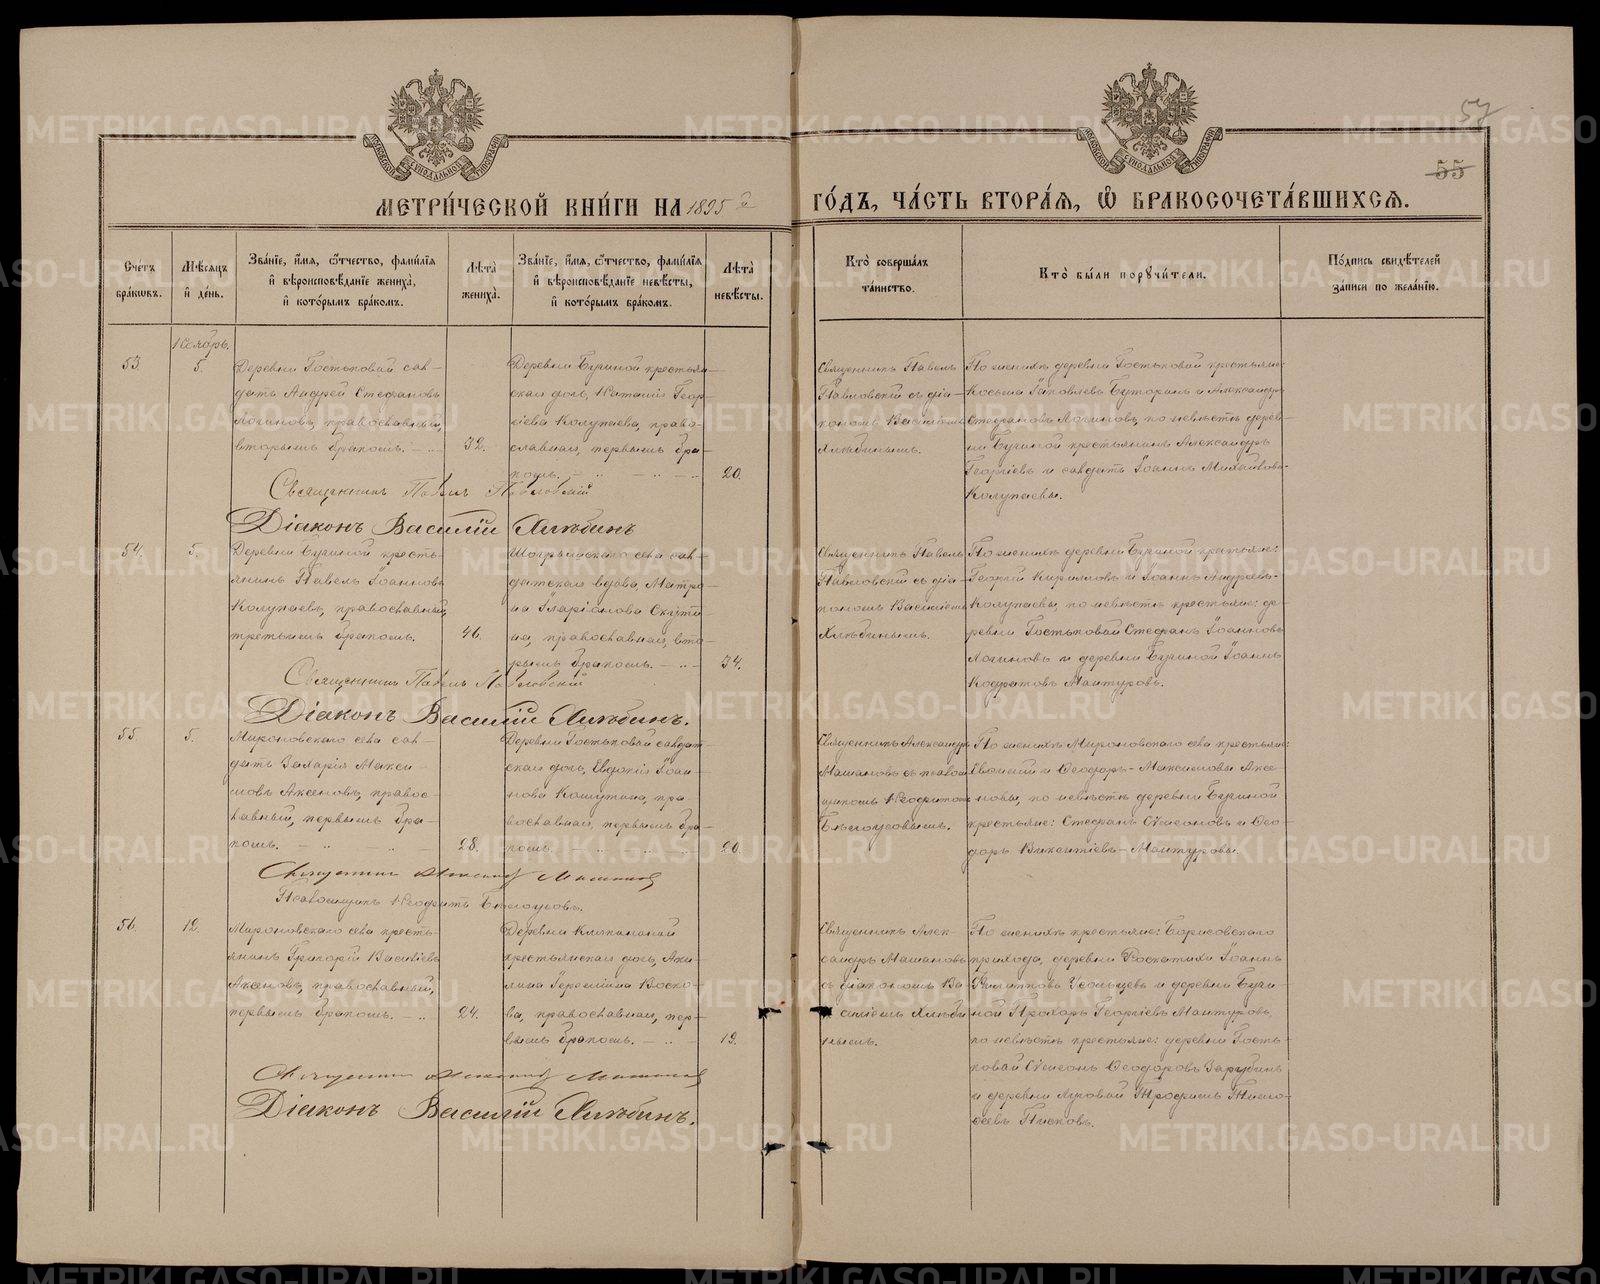 57
55
МЕТРИ́ЧЕСКОЙ КНИ́ГИ НА 1895 й ГО́ДЪ, ЧА́СТЬ ВТОРА́Я, Ѿ БРАКОСОЧЕТА́ВШИХСЯ.
Сче́тъ бра́кѡвъ.
Мѣ́сяцъ и҆ де́нь.
Зва́нїе, и҆́мя, ѻ҆́тчество, фами́лїя и҆ вѣроисповѣ́данїе жениха̀, и҆ кото́рымъ бра́комъ.
Лѣ́та жениха̀.
Зва́нїе, и҆́мя, ѻ҆́тчество, фами́лїя и҆ вѣроисповѣ́данїе невѣ́сты, и҆ кото́рымъ бра́комъ.
Лѣ́та невѣ́сты.
Кто̀ соверша́лъ та́инство.
Кто̀ бы́ли порꙋчи́тели.
По́дпись свидѣ́телей за́писи по жела́нїю.
Ноябрь.
53.
5.
Деревни Гостьковой сол-
датъ Андрей Стефановъ
Логиновъ, православный,
вторымъ бракомъ.
32.
Деревни Бучиной крестьян-
ская дочь, Наталія Геор-
гіева Колупаева, право-
славная, первымъ бра-
комъ.
20.
Священникъ Павелъ
Павловскій съ діа-
кономъ Василіемъ
Хлѣбинымъ.
По женихѣ деревни Гостьковой крестьяне:
Косьма Іаковлевъ и Александръ
Стефановъ Логиновъ, по невѣстѣ дерев-
ни Бучиной крестьянинъ Александръ
Георгіевъ и солдатъ Іоаннъ Михайловъ
Колупаевы.
Священникъ Павелъ Павловскій
Діаконъ Василій Хлѣбинъ
54.
5.
Деревни Бучиной кресть-
янинъ Павелъ Іоанновъ
Колупаевъ, православный,
третьимъ бракомъ.
46.
Шогринскаго села сол-
датская вдова, Матро-
на Иларіонова
на, православная, вто-
рымъ бракомъ.
34.
Священникъ Павелъ
Павловскій съ діа-
кономъ Василіемъ
Хлѣбинымъ.
По женихѣ деревни Бучиной крестьяне:
Георгій Кирилловъ и Іоаннъ Андреевъ
Колупаевы, по невѣстѣ крестьяне: де-
ревни Гостьковой Стефанъ Іоанновъ
Логиновъ и деревни Бучиной Іоаннъ
Кодратовъ Мантуровъ.
Священникъ Павелъ Павловскій
Діаконъ Василій Хлѣбинъ.
55.
5.
Мироновскаго села сол-
датъ Захарія Макси-
мовъ Аксеновъ, право-
славный, первымъ бра-
комъ.
28.
Деревни Гостьковой солдат-
ская дочь, Евдокія Іоан-
нова пра-
вославная, первымъ бра-
комъ.
20.
Священникъ Александръ
Машановъ съ псалом-
щикомъ Неофитомъ
Бѣлоусовымъ.
По женихѣ Мироновскаго села крестьяне:
и Ѳеодоръ Максимовы Аксе-
новы, по невѣстѣ деревни Бучиной
крестьяне: Стефанъ Симеоновъ и Ѳео-
доръ Викентіевъ Мантуровы.
Священникъ Александръ Машановъ
Псаломщикъ Неофитъ Бѣлоусовъ.
56.
12.
Мироновскаго села кресть-
янинъ Григорій Василіевъ
Аксеновъ, православный,
первымъ бракомъ.
24.
Деревни
крестьянская дочь, Аки-
лина
ва, православная, пер-
вымъ бракомъ.
19.
Священникъ Алек-
сандръ Машановъ
съ діакономъ Ва-
силіемъ Хлѣби-
нымъ.
По женихѣ крестьяне: Борисовскаго
прихода, деревни Іоаннъ
Филипповъ и деревни Бучи-
ной Прохоръ Георгіевъ Мантуровъ,
по невѣстѣ крестьяне: деревни Гость-
ковой Симеонъ Ѳеодоровъ Зарубинъ
и деревни Луговой Трофимъ Тимо-
ѳеевъ
Священникъ Александръ Машановъ
Діаконъ Василій Хлѣбинъ.
METRIKI.GASO-URAL.RU